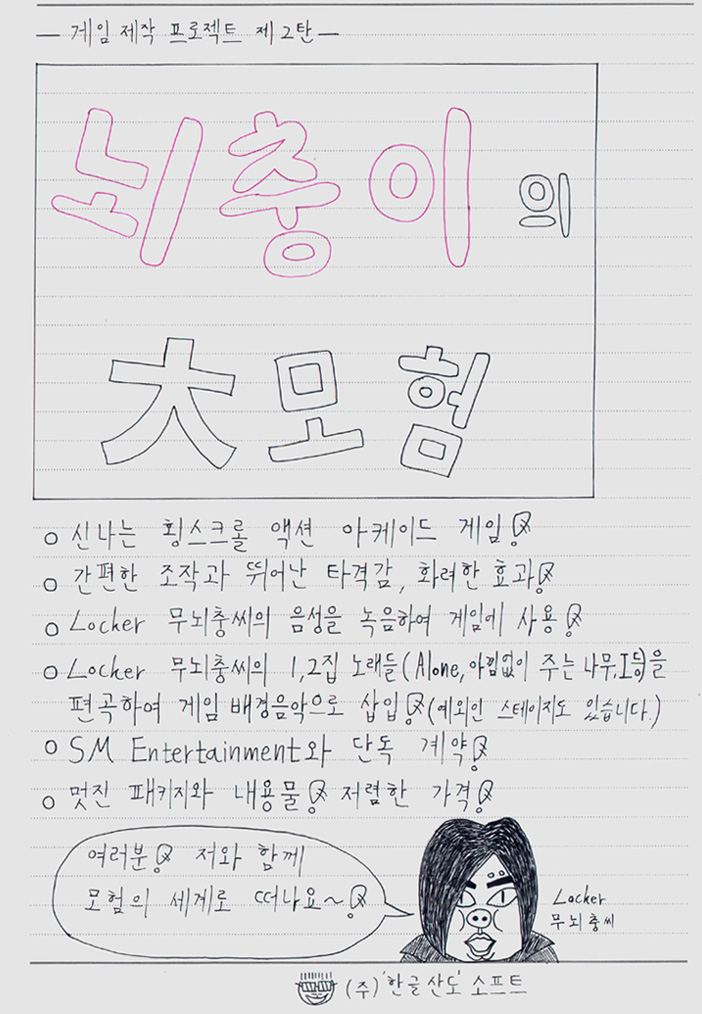 — 게임 제작 프로젝트 제 2탄 —
뇌충이의
大모험
○ 신나는 횡스크롤 액션 아케이드 게임!
○ 간편한 조작과 뛰어난 타격감, 화려한 효과!
○ Locker 무뇌충씨의 음성을 녹음하여 게임에 사용!
○ Locker 무뇌충씨의 1,2집 노래들(Alone, 아낌없이 주는 나무, I 등)을
편곡하여 게임 배경음악으로 삽입! (예외인 스테이지도 있습니다.)
○ SM Entertainment와 단독 계약!
○ 멋진 패키지와 내용물! 저렴한 가격!
여러분! 저와 함께
모험의 세계로 떠나요~!
Locker
무뇌충씨
(주)'한글산도'소프트